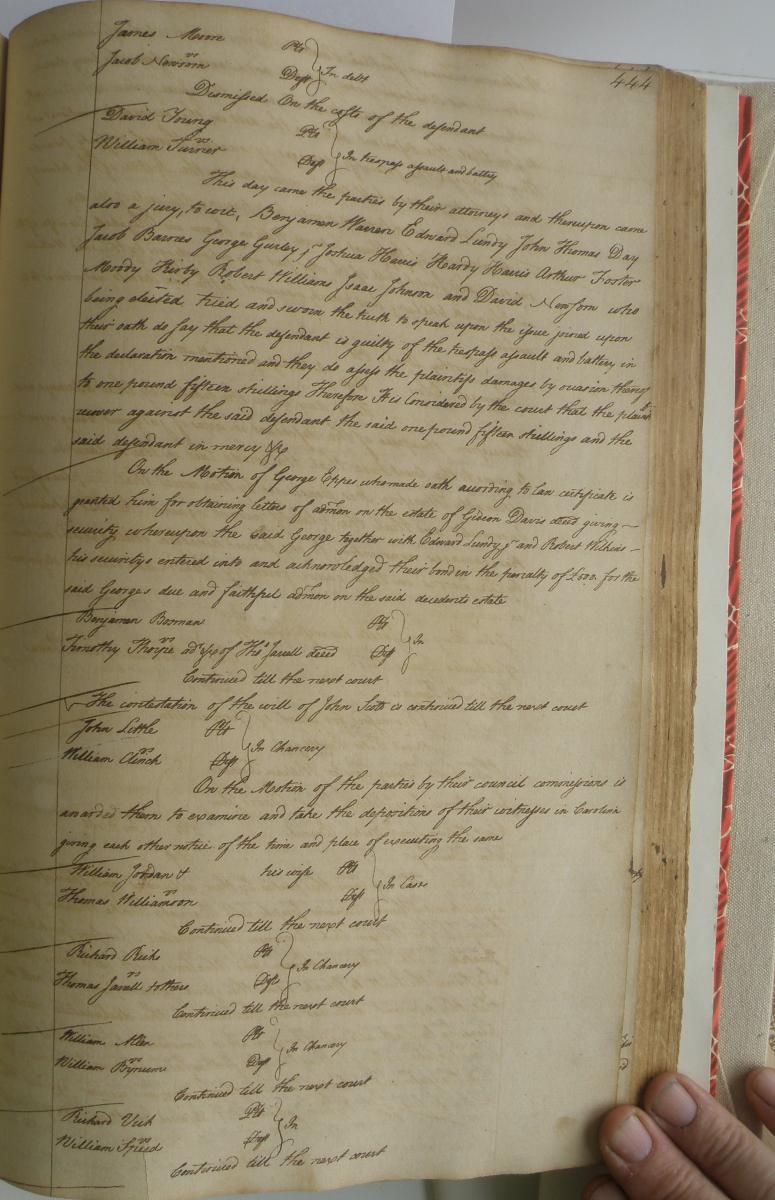 444
James Moore Plt
vs In debt
Jacob Newsom Deft
Dismissed On the costs of the defendant
David Young Plt
vs In trespass assault and battery
William Turner Deft
This day came the parties by their attorneys and thereupon came
also a jury, to wit, Benjamen Warren Edward Lundy John Thomas Day
Jacob Barnes George Gurley jr Joshua Harris Hardy Harris Arthur Foster
Moody Kirby Robert Williams Isaac Johnson and David Newsom who
being elected tried and sworn the truth to speak upon the issue joined upon
their oath do say that the defendant is guilty of the trespass assault and battery in
the declaration mentioned and they do assess the plaintiffs damages by occasion thereof
to one pound fifteen shillings Therefore It is Considered by the court that the plaintif
recover against the said defendant the said one pound fifteen shillings and the
said defendant in mercy &c
On the Motion of George Eppes who made oath according to Law certificate is
granted him for obtaining letters of admon on the estate of Gideon Davis deced giving
security whereupon the said George together with Edward Lundy jr and Robert Wilkins
his securitys entered into and acknowledged their bond in the penalty of £500. for the
said Georges due and faithful admon on the said decedents estate
Benjamen Boman Plt
vs In
Timothy Thorpe adr &c of Thos Jarrell deced Deft
Continued till the next court
The contestation of the will of John Scott is continued till the next court
John Little Plt
vs In Chancery
William Clinch Deft
On the Motion of the parties by their council commissions is
awarded them to examine and take the depositions of their witnesses in Carolina
giving each other notice of the time and place of executing the same
William Jordan & his wife Plt
vs In Case
Thomas Williamson Deft
Continued till the next court
Richard Ricks Plt
vs In Chancery
Thomas Jarrell & others Defts
Continued till the next court
William Allen Plt
vs In Chancery
William Bynum Deft
Continued till the next court
Richard Veck Plt
vs In
William Speed Deft
Continued till the next court